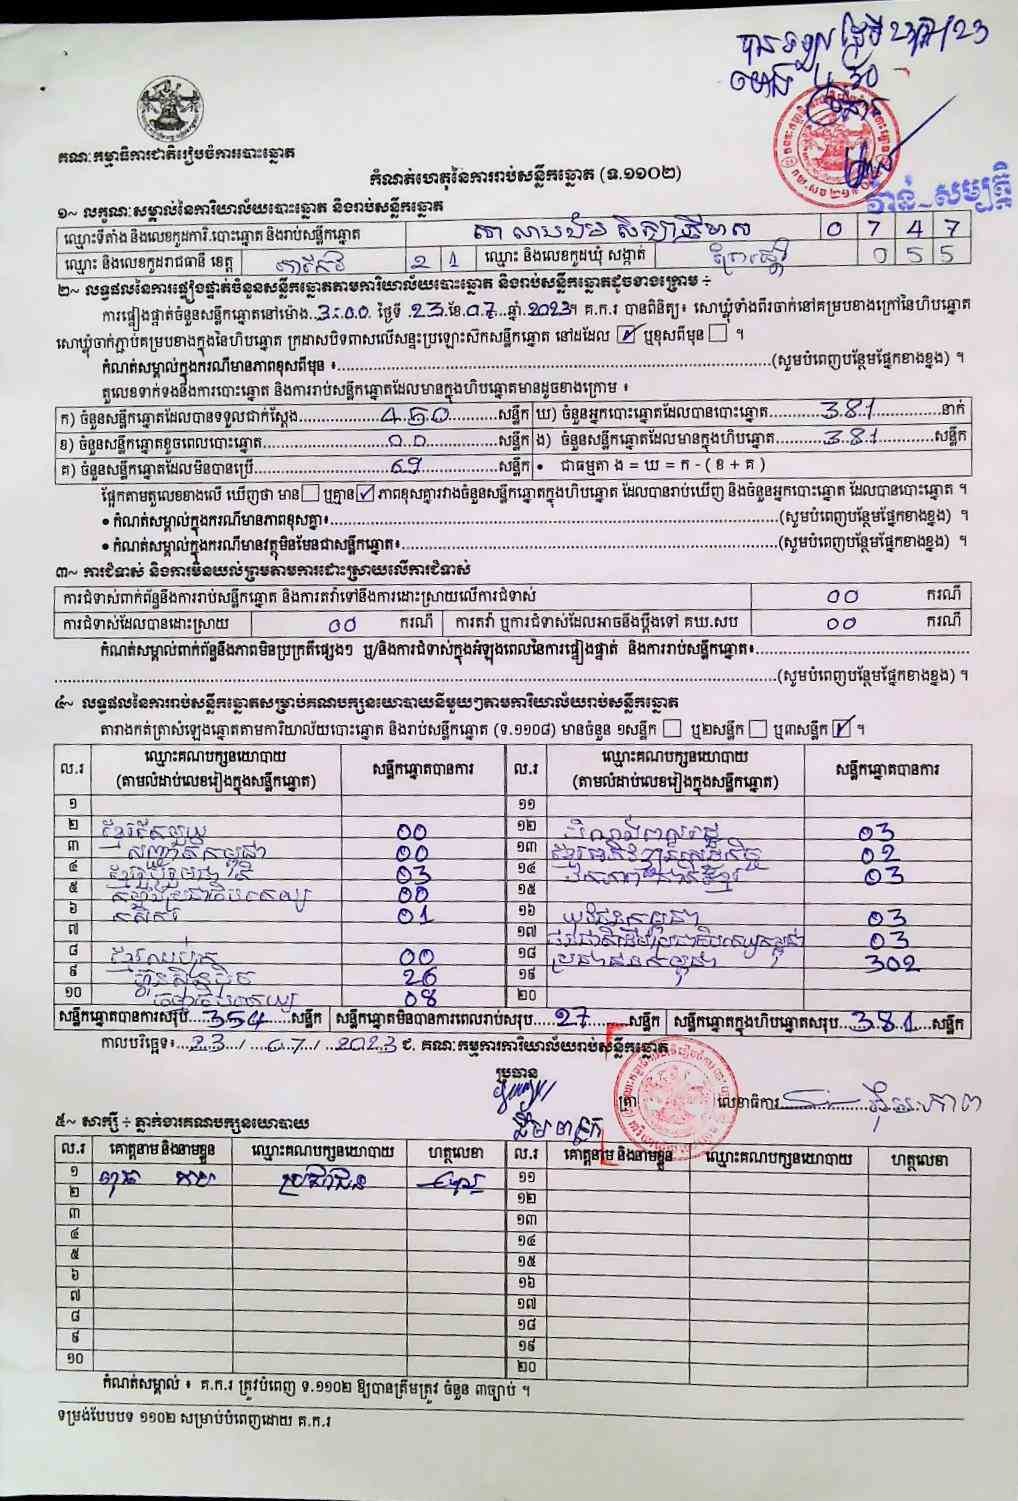 បានទទួល ថ្ងៃទី 23/7/23
ម៉ោង 4:30
វ៉ាន់-សម្បត្តិ
គណៈកម្មាធិការជាតិរៀបចំការបោះឆ្នោត
កំណត់ហេតុនៃការរាប់សន្លឹកឆ្នោត (ទ.១១០២)
១~ លក្ខណៈសម្គាល់នៃការិយាល័យបោះឆ្នោត និងរាប់សន្លឹកឆ្នោត
ឈ្មោះទីតាំង និងលេខកូដការិ.បោះឆ្នោត និងរាប់សន្លឹកឆ្នោត 0 7 4 7
ឈ្មោះ និងលេខកូដរាជធានី ខេត្ត តាកែវ 2 1 ឈ្មោះ និងលេខកូដឃុំ សង្កាត់ ព្រៃផ្តៅ 0 5 5
២~ លទ្ធផលនៃការផ្ទៀងផ្ទាត់ចំនួនសន្លឹកឆ្នោតតាមការិយាល័យបោះឆ្នោត និងរាប់សន្លឹកឆ្នោតដូចខាងក្រោម ÷
ការផ្ទៀងផ្ទាត់ចំនួនសន្លឹកឆ្នោតនៅម៉ោង 3:00 ថ្ងៃទី 23 ខែ 07 ឆ្នាំ 2023។ គ.ក.រ បានពិនិត្យ៖ សោឃ្លុំទាំងពីរចាក់នៅគម្របខាងក្រៅនៃហិបឆ្នោត
សោឃ្លុំចាក់ភ្ជាប់គម្របខាងក្នុងនៃហិបឆ្នោត ក្រដាសបិទពាសលើសន្ទះប្រឡោះសឹកសន្លឹកឆ្នោត នៅដដែល ☑ ឬខុសពីមុន ☐ ។
កំណត់សម្គាល់ក្នុងករណីមានភាពខុសពីមុន ៖ (សូមបំពេញបន្ថែមផ្នែកខាងខ្នង) ។
តួលេខទាក់ទងនឹងការបោះឆ្នោត និងការរាប់សន្លឹកឆ្នោតដែលមានក្នុងហិបឆ្នោតមានដូចខាងក្រោម ៖
ក) ចំនួនសន្លឹកឆ្នោតដែលបានទទួលជាក់ស្តែង 450 សន្លឹក ឃ) ចំនួនអ្នកបោះឆ្នោតដែលបានបោះឆ្នោត 381 នាក់
ខ) ចំនួនសន្លឹកឆ្នោតខូចពេលបោះឆ្នោត 00 សន្លឹក ង) ចំនួនសន្លឹកឆ្នោតដែលមានក្នុងហិបឆ្នោត 381 សន្លឹក
គ) ចំនួនសន្លឹកឆ្នោតដែលមិនបានប្រើ 69 សន្លឹក • ជាធម្មតា ង = ឃ = ក - ( ខ + គ )
ផ្អែកតាមតួលេខខាងលើ ឃើញថា មាន ☐ ឬគ្មាន ☑ ភាពខុសគ្នារវាងចំនួនសន្លឹកឆ្នោតក្នុងហិបឆ្នោត ដែលបានរាប់ឃើញ និងចំនួនអ្នកបោះឆ្នោត ដែលបានបោះឆ្នោត ។
• កំណត់សម្គាល់ក្នុងករណីមានភាពខុសគ្នា៖ (សូមបំពេញបន្ថែមផ្នែកខាងខ្នង) ។
• កំណត់សម្គាល់ក្នុងករណីមានវត្ថុមិនមែនជាសន្លឹកឆ្នោត៖ (សូមបំពេញបន្ថែមផ្នែកខាងខ្នង) ។
៣~ ការជំទាស់ និងការមិនយល់ព្រមតាមការដោះស្រាយលើការជំទាស់
ការជំទាស់ពាក់ព័ន្ធនឹងការរាប់សន្លឹកឆ្នោត និងការតវ៉ាទៅនឹងការដោះស្រាយលើការជំទាស់ 00 ករណី
ការជំទាស់ដែលបានដោះស្រាយ 00 ករណី ការតវ៉ា ឬការជំទាស់ដែលអាចនឹងប្តឹងទៅ គឃ.សប 00 ករណី
កំណត់សម្គាល់ពាក់ព័ន្ធនឹងភាពមិនប្រក្រតីផ្សេងៗ ឬ/និងការជំទាស់ក្នុងអំឡុងពេលនៃការផ្ទៀងផ្ទាត់ និងការរាប់សន្លឹកឆ្នោត៖
(សូមបំពេញបន្ថែមផ្នែកខាងខ្នង) ។
៤~ លទ្ធផលនៃការរាប់សន្លឹកឆ្នោតសម្រាប់គណបក្សនយោបាយនីមួយៗតាមការិយាល័យរាប់សន្លឹកឆ្នោត
តារាងកត់ត្រាសំឡេងឆ្នោតតាមការិយាល័យបោះឆ្នោត និងរាប់សន្លឹកឆ្នោត (ទ.១១០៨) មានចំនួន ១សន្លឹក ☐ ឬ២សន្លឹក ☐ ឬ៣សន្លឹក ☑ ។
ល.រ ឈ្មោះគណបក្សនយោបាយ (តាមលំដាប់លេខរៀងក្នុងសន្លឹកឆ្នោត) សន្លឹកឆ្នោតបានការ ល.រ ឈ្មោះគណបក្សនយោបាយ (តាមលំដាប់លេខរៀងក្នុងសន្លឹកឆ្នោត) សន្លឹកឆ្នោតបានការ
១ ១១
២ 00 ១២ 03
៣ សញ្ជាតិកម្ពុជា 00 ១៣ ខ្មែរអភិវឌ្ឍន៍សេដ្ឋកិច្ច 02
៤ ខ្មែររួបរួមជាតិ 03 ១៤ ឯកភាពជាតិខ្មែរ 03
៥ កម្លាំងប្រជាធិបតេយ្យ 00 ១៥
៦ កសិករ 01 ១៦ យុវជនកម្ពុជា 03
៧ ១៧ 03
៨ ខ្មែរឈប់ក្រ 00 ១៨ ប្រជាជនកម្ពុជា 302
៩ ហ្វ៊ុនស៊ិនប៉ិច 26 ១៩
១០ 08 ២០
សន្លឹកឆ្នោតបានការសរុប 354 សន្លឹក សន្លឹកឆ្នោតមិនបានការពេលរាប់សរុប 27 សន្លឹក សន្លឹកឆ្នោតក្នុងហិបឆ្នោតសរុប 381 សន្លឹក
កាលបរិច្ឆេទ៖ 23 / 07 / 2023 ជ. គណៈកម្មការការិយាល័យរាប់សន្លឹកឆ្នោត
ប្រធាន
ត្រា លេខាធិការ
៥~ សាក្សី ÷ ភ្នាក់ងារគណបក្សនយោបាយ
ល.រ គោត្តនាម និងនាមខ្លួន ឈ្មោះគណបក្សនយោបាយ ហត្ថលេខា ល.រ គោត្តនាម និងនាមខ្លួន ឈ្មោះគណបក្សនយោបាយ ហត្ថលេខា
១ ប្រជាជន ១១
២ ១២
៣ ១៣
៤ ១៤
៥ ១៥
៦ ១៦
៧ ១៧
៨ ១៨
៩ ១៩
១០ ២០
កំណត់សម្គាល់ ៖ គ.ក.រ ត្រូវបំពេញ ទ.១១០២ ឱ្យបានត្រឹមត្រូវ ចំនួន ៣ច្បាប់ ។
ទម្រង់បែបបទ ១១០២ សម្រាប់បំពេញដោយ គ.ក.រ